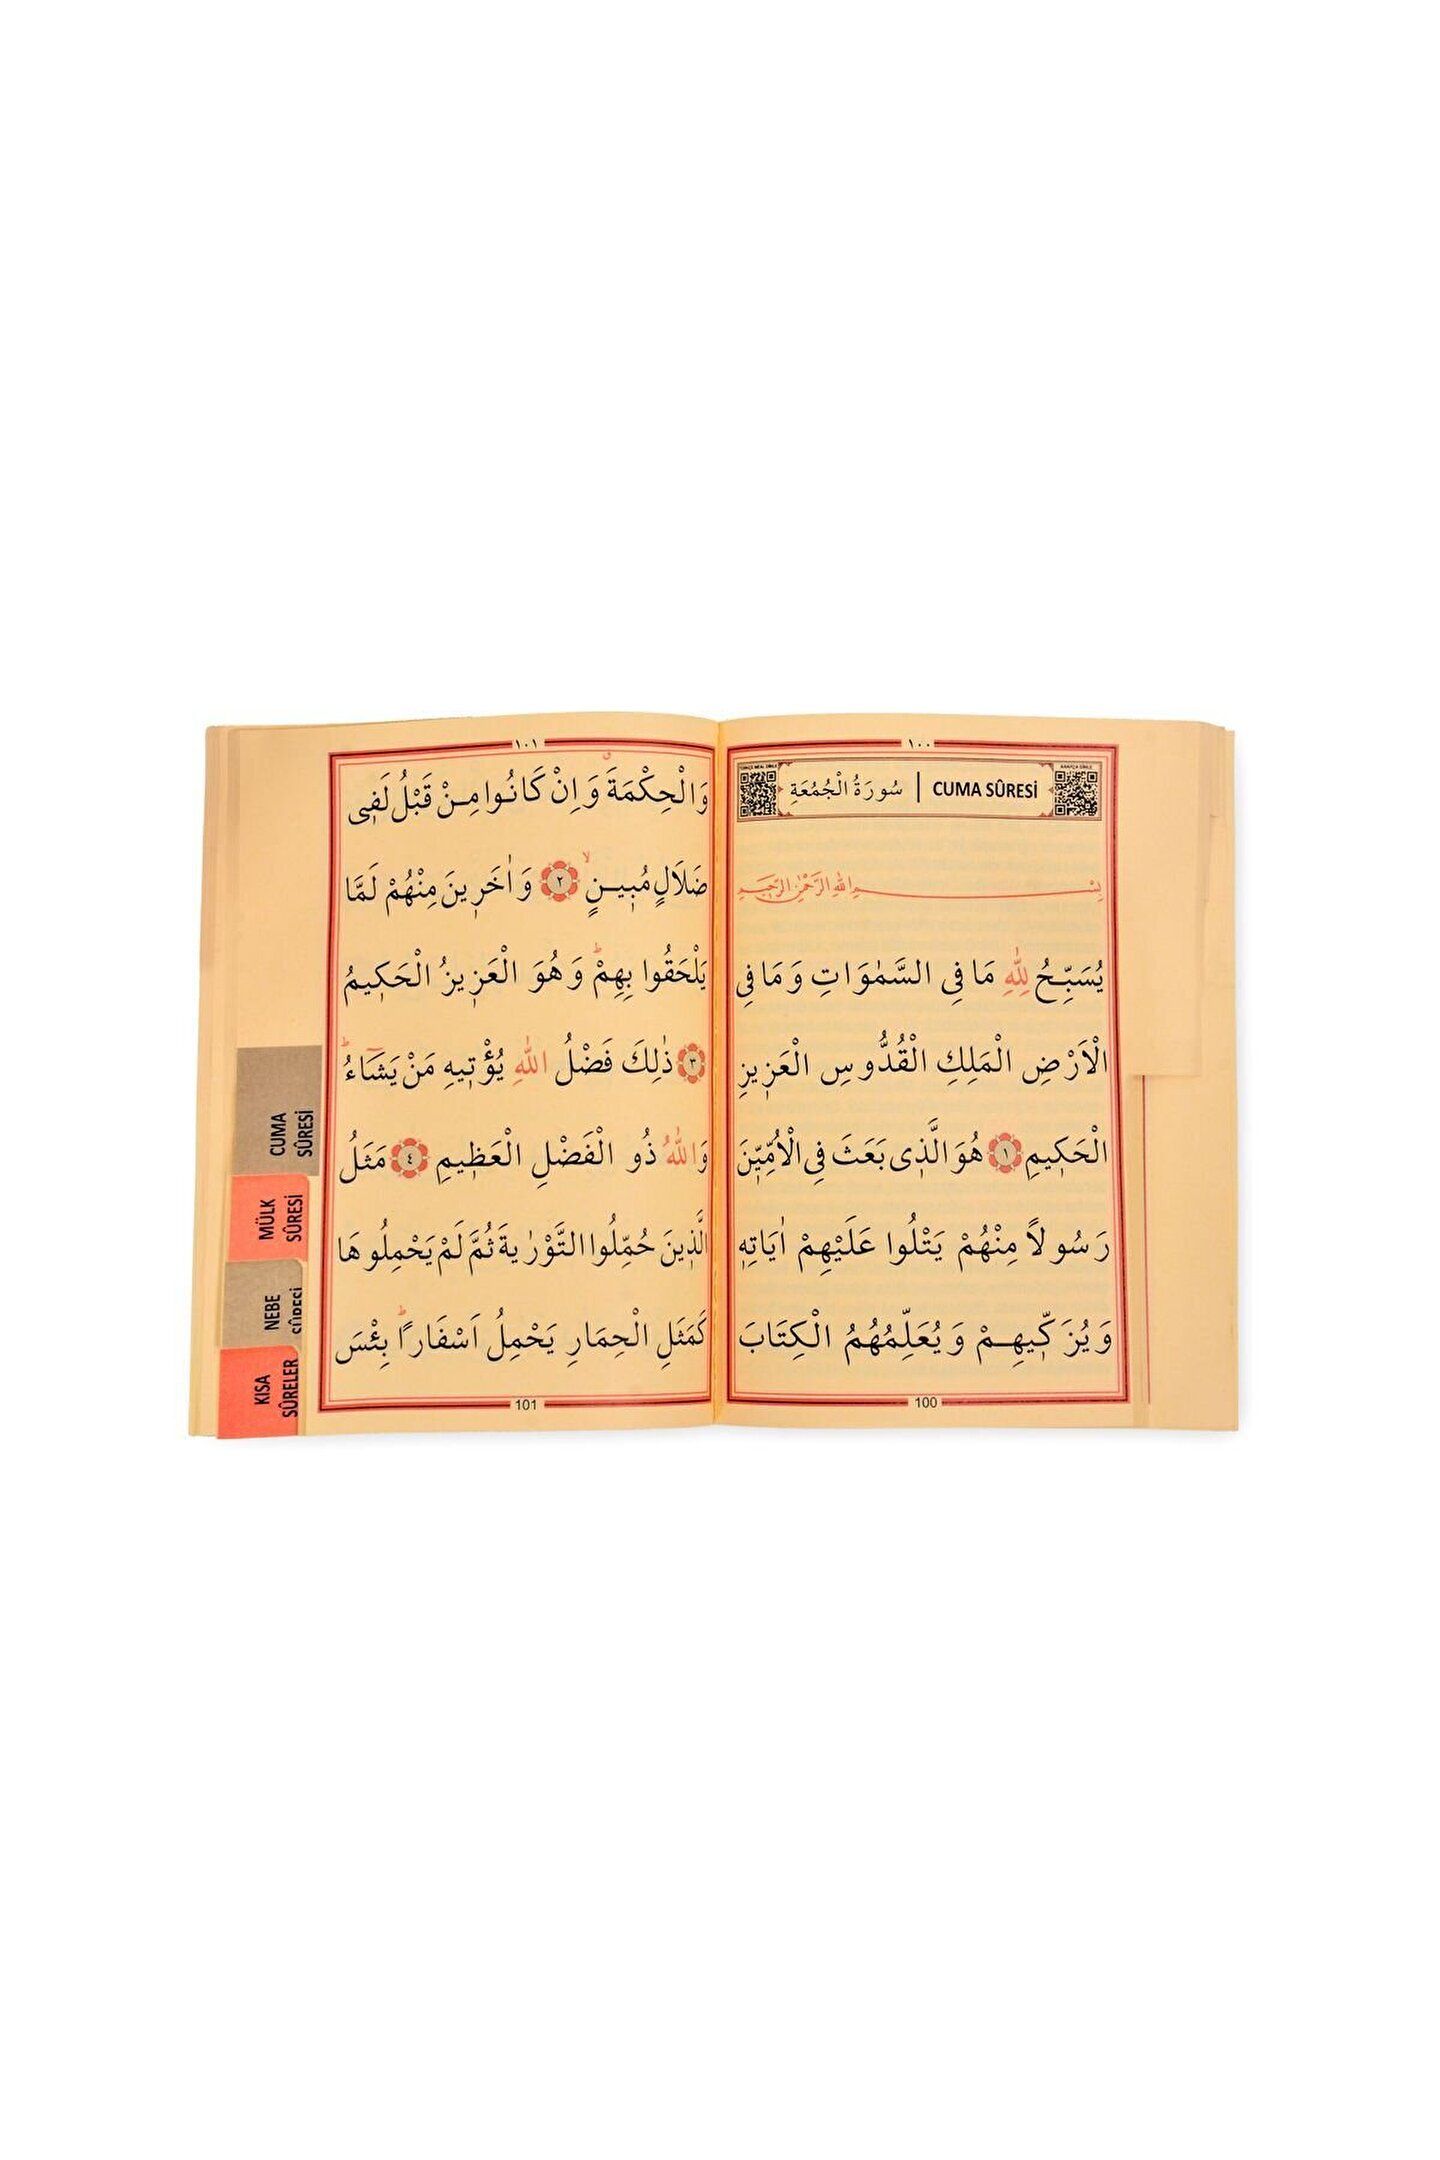 ١٠٠
TÜRKÇE MEAL DİNLE
ARAPÇA DİNLE
سُورَةُ الْجُمُعَةِ | CUMA SÛRESİ
بِسْمِ اللّٰهِ الرَّحْمٰنِ الرَّحٖيمِ
يُسَبِّحُ لِلّٰهِ مَا فِى السَّمٰوَاتِ وَمَا فِى
الْاَرْضِ الْمَلِكِ الْقُدُّوسِ الْعَزٖيزِ
الْحَكٖيمِ ﴿١﴾ هُوَ الَّذٖى بَعَثَ فِى الْاُمِّيّٖنَ
رَسُولاً مِنْهُمْ يَتْلُوا عَلَيْهِمْ اٰيَاتِهٖ
وَيُزَكّٖيهِمْ وَيُعَلِّمُهُمُ الْكِتَابَ
100
١٠١
وَالْحِكْمَةَۗ وَاِنْ كَانُوا مِنْ قَبْلُ لَفٖى
ضَلَالٍ مُبٖينٍۙ ﴿٢﴾ وَاٰخَرٖينَ مِنْهُمْ لَمَّا
يَلْحَقُوا بِهِمْؕ وَهُوَ الْعَزٖيزُ الْحَكٖيمُ
﴿٣﴾ ذٰلِكَ فَضْلُ اللّٰهِ يُؤْتٖيهِ مَنْ يَشَٓاءُؕ
وَاللّٰهُ ذُو الْفَضْلِ الْعَظٖيمِ ﴿٤﴾ مَثَلُ
الَّذٖينَ حُمِّلُوا التَّوْرٰيةَ ثُمَّ لَمْ يَحْمِلُوهَا
كَمَثَلِ الْحِمَارِ يَحْمِلُ اَسْفَاراًؕ بِئْسَ
101
CUMA
SÛRESİ
MÜLK
SÛRESİ
NEBE
SÛRESİ
KISA
SÛRELER